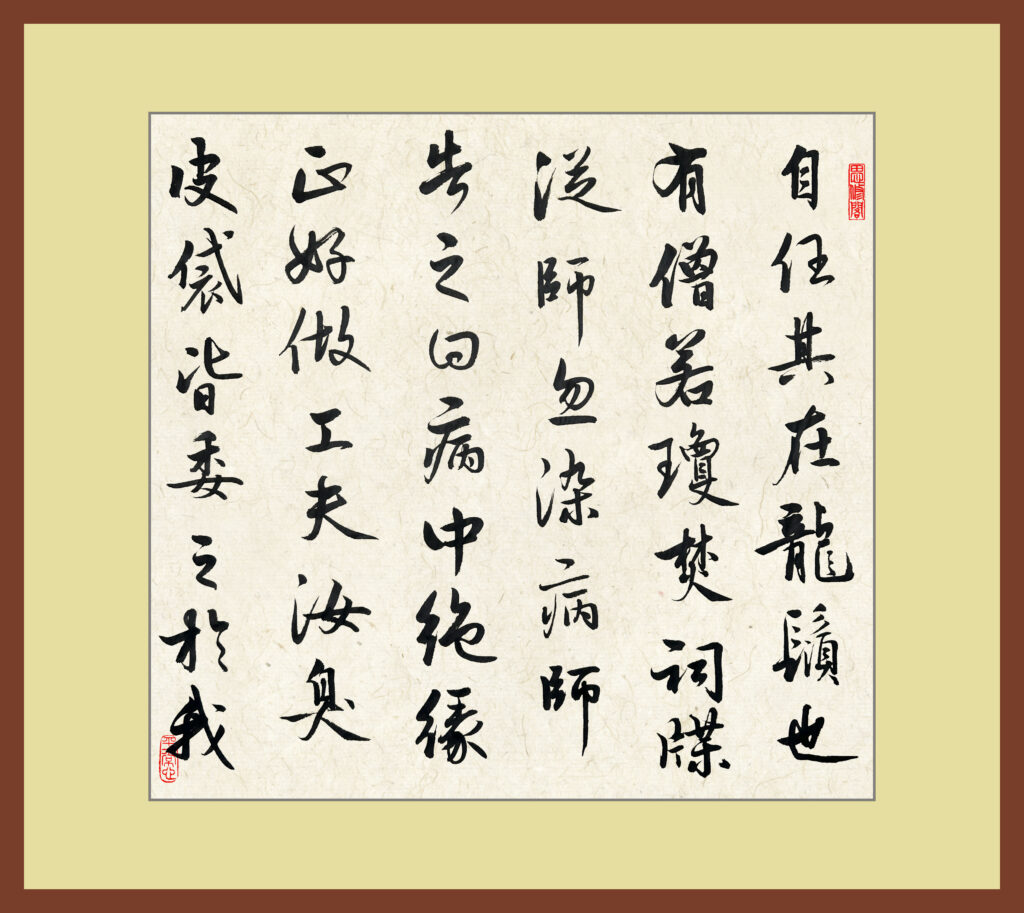 自任其在龍鬚也
有僧若瓊焚祠牒
從師忽染病師
告之曰病中絕緣
正好做工夫汝臭
皮袋皆委之於我
思修閣